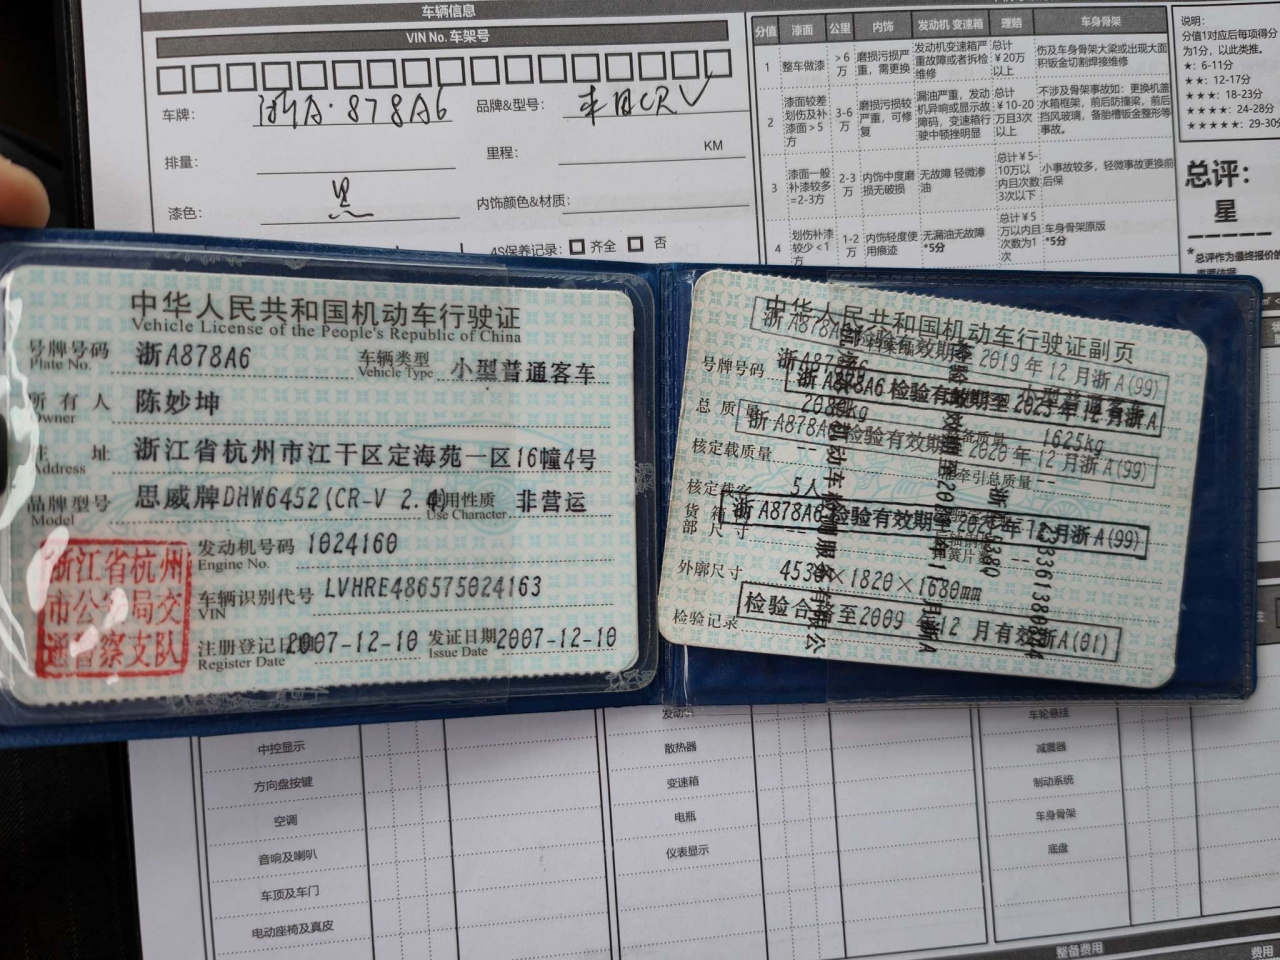 车辆信息
VIN No. 车架号
车牌: 浙A·878A6 品牌&型号: 本田CRV
排量: 里程: KM
漆色: 黑 内饰颜色&材质:
4S保养记录: 齐全 否
分值 漆面 公里 内饰 发动机 变速箱 理赔 车身骨架
1 整车做漆 >6万 磨损污损严重,需更换 发动机变速箱严重故障或者拆检维修 总计¥20万以上 伤及车身骨架大梁或出现大面积钣金切割焊接维修
2 漆面较差划伤及补漆面>5方 3-6万 磨损污损较严重,可修复 漏油严重,发动机异响或显示故障码,变速箱行驶中顿挫明显 总计¥10-20万且3次以上 不涉及骨架事故如:更换机盖水箱框架,前后防撞梁,前后挡风玻璃,备胎槽钣金整形等事故。
3 漆面一般补漆较多=2-3方 2-3万 内饰中度磨损无破损 无故障 轻微渗油 总计¥5-10万以内且次数3次以下 小事故较多,轻微事故更换前后保
4 划伤补漆较少<1方 1-2万 内饰轻度使用痕迹 无漏油无故障*5分 总计¥5万以内且次数为1 车身骨架原版*5分
说明:
分值1对应后每项得分
为1分,以此类推。
★: 6-11分
★★: 12-17分
★★★: 18-23分
★★★★: 24-28分
★★★★★: 29-30分
总评:
星
*总评作为最终报价的
中华人民共和国机动车行驶证
Vehicle License of the People's Republic of China
号牌号码 Plate No. 浙A878A6 车辆类型 Vehicle Type 小型普通客车
所有人 Owner 陈妙坤
住址 Address 浙江省杭州市江干区定海苑一区16幢4号
品牌型号 Model 思威牌DHW6452(CR-V 2.4) 使用性质 Use Character 非营运
发动机号码 Engine No. 1024160
车辆识别代号 VIN LVHRE486575024163
注册登记日期 Register Date 2007-12-10 发证日期 Issue Date 2007-12-10
浙江省杭州
市公安局交
通警察支队
中华人民共和国机动车行驶证副页
浙A878A6检验有效期至2019年12月浙A(99)
号牌号码 浙A878A6
浙A878A6检验有效期至2023年12月浙A
总质量 2080kg 整备质量 1625kg
浙A878A6检验有效期至2020年12月浙A(99)
核定载质量 牵引总质量 --
核定载客 5人
浙A878A6检验有效期至
外廓尺寸 4530×1820×1680mm
检验记录 检验合格至2009年12月有效浙A(01)
中控显示 散热器 车轮悬挂
方向盘按键 变速箱 减震器
空调 电瓶 制动系统
音响及喇叭 仪表显示 车身骨架
车顶及车门 底盘
电动座椅及真皮
整备费用 费用